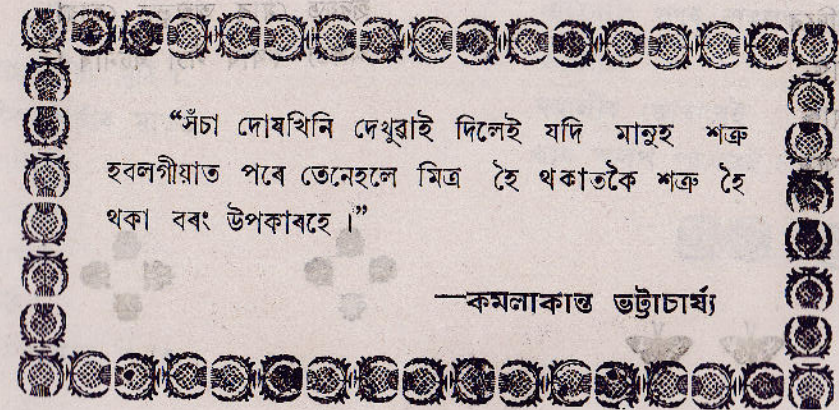 “সঁচা দোষখিনি দেখুৱাই দিলেই যদি মানুহ শত্ৰু
হবলগীয়াত পৰে তেনেহলে মিত্ৰ হৈ থকাতকৈ শত্ৰু হৈ
থকা বৰং উপকাৰহে।”
—কমলাকান্ত ভট্টাচাৰ্য্য